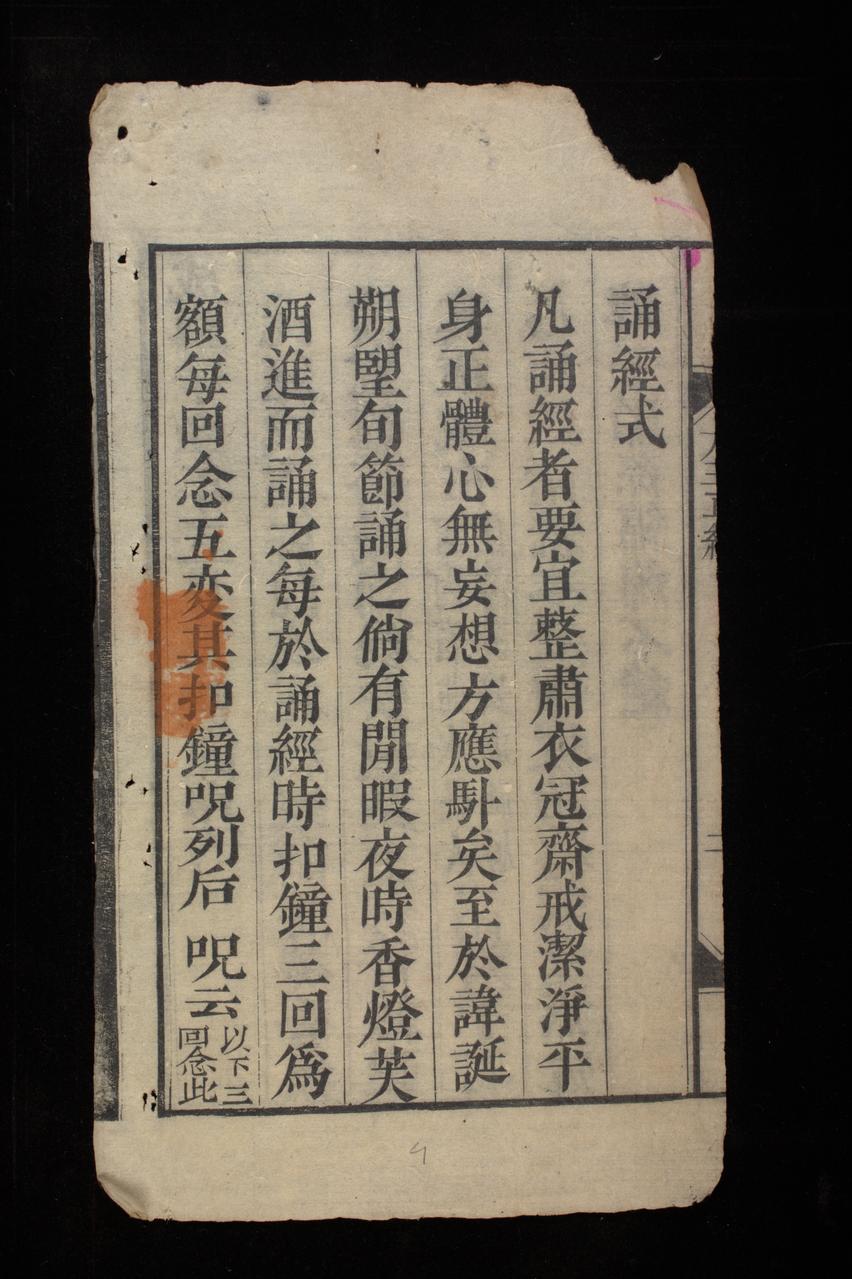 誦經式
凡誦經者要宜整肅衣冠齋戒潔淨平
身正體心無妄想方應馸矣至於諱誕
朔朢旬節誦之倘有閒暇夜時香燈芙
酒進而誦之每於誦經時扣鐘三回爲
額每回念五変其扣鐘呪列后 呪云
以下三
回念此
二